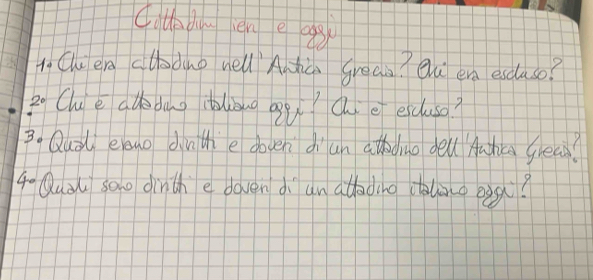 Cittadini ieri e oggi
1. Chi era cittadino nell'Antica Grecia? Chi era escluso?
2. Chi è cittadino italiano oggi? Chi è escluso?
3. Quali erano diritti e doveri di un cittadino dell'Antica Grecia?
4. Quali sono diritti e doveri di un cittadino italiano oggi?